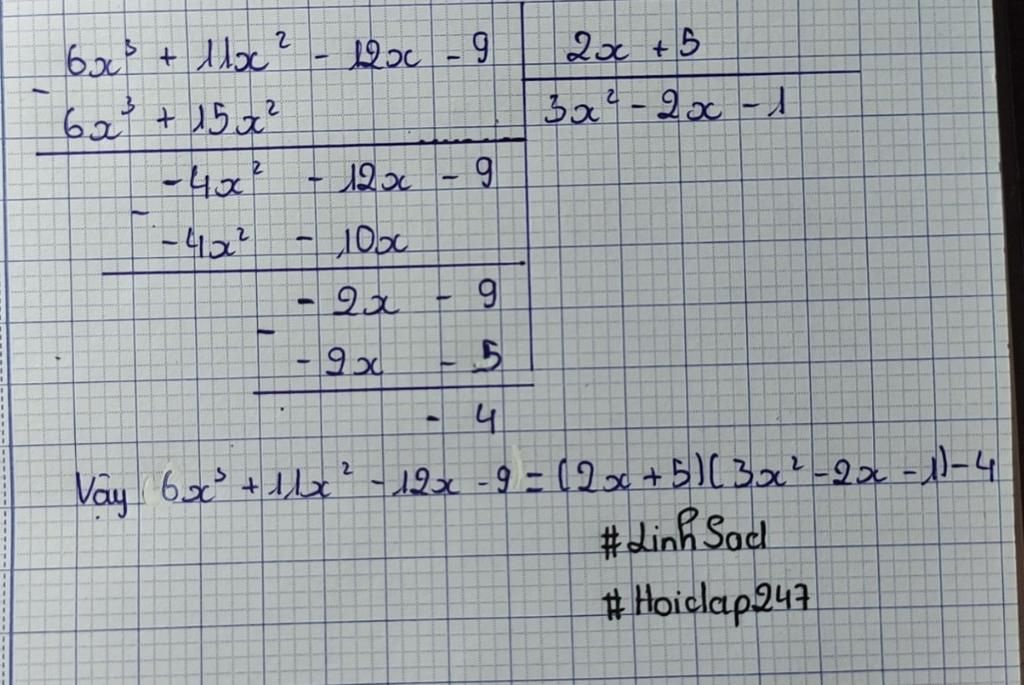 6x³ + 11x² - 12x - 9 | 2x + 5
- 6x³ + 15x² | 3x² - 2x - 1
-4x² - 12x - 9
- -4x² - 10x
- 2x - 9
- - 2x - 5
- 4
Vậy 6x³ + 11x² - 12x - 9 = (2x + 5)(3x² - 2x - 1) - 4
#LinhSad
#Hoidap247